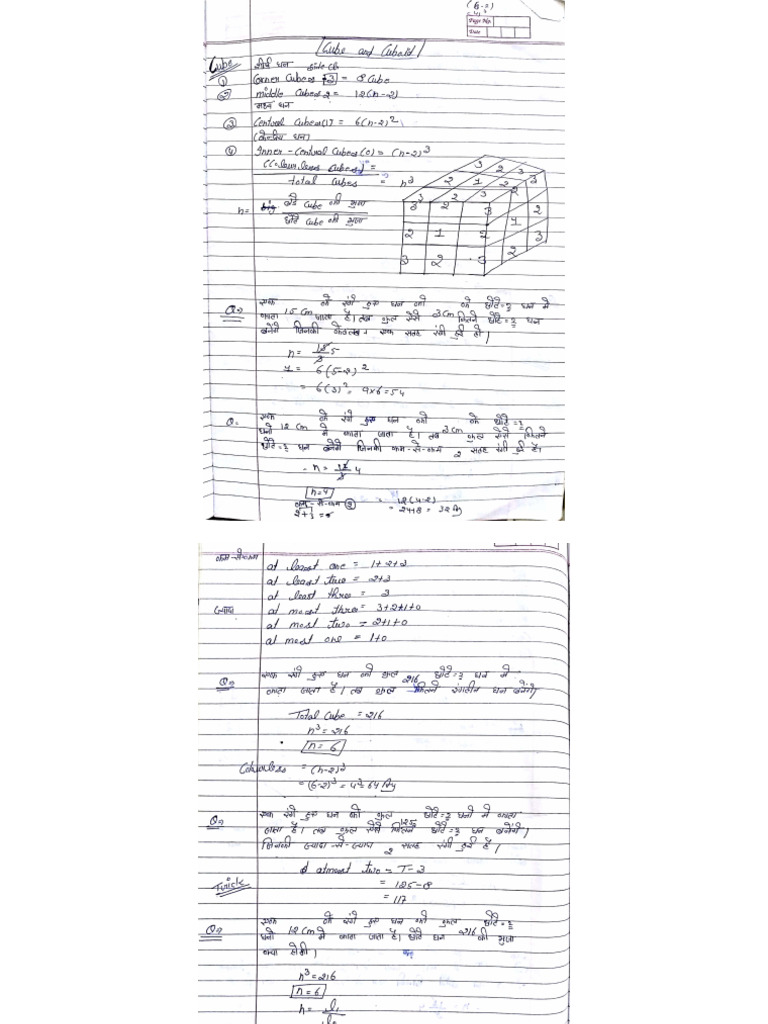 Page No.
Date
Cube and Cuboid
Cube
शीर्ष घन
① Corner Cubes [3] = 8 Cube
② middle Cubes 2 = 12(n-2)
मध्य घन
③ Central Cubes(1) = 6(n-2)²
(केन्द्रीय घन)
④ Inner - Central Cubes(0) = (n-2)³
total Cubes = n³
n = बड़े Cube की भुजा
छोटे Cube की भुजा
Q.
एक को रंगे हुए घन को के छोटे-2 घन में
काटा 15 Cm जाता है। तब कुल ऐसे 3 Cm कितने छोटे-2 घन
बनेंगे जिनकी केवल एक सतह रंगी हुई हो।
n = 15/3 5
1 = 6(5-2)²
= 6(3)² = 9×6 = 54
Q.
एक के रंगे हुए घन को के छोटे-2
घनो 12 Cm में काटा जाता है। तब 3 Cm कुल ऐसे कितने
छोटे-2 घन बनेंगे जिनकी कम-से-कम 2 सतह रंगी हुई है।
n = 12/3 4
n=4
कम-से-कम ② = 12(4-2)
2+3 = = 24+8 = 32 Ay
at least one = 1+2+3
at least two = 2+3
at least three = 3
ज्यादा at most three = 3+2+1+0
at most two = 2+1+0
at most one = 1+0
Q.
एक रंगे हुए घन को कुल 216 छोटे-2 घन में
काटा जाता है। तब कुल कितने रंगहीन घन बनेंगे।
Total Cube = 216
n³ = 216
n = 6
Colourless = (n-2)³
= (6-2)³ = 4³ = 64 Ay
Q.
एक रंगे हुए घन को कुल 125 छोटे-2 घनो में काटा
जाता है। तब कुल ऐसे कितने छोटे-2 घन बनेंगे।
जिनकी ज्यादा-से-ज्यादा 2 सतह रंगी हुई है।
atmost two = T-3
= 125-8
= 117
Trick
Q.
एक के रंगे हुए घन को कुल छोटे-2
घनो 12 Cm में काटा जाता है। छोटे घन 216 की भुजा
क्या होगी।
n³ = 216
n = 6